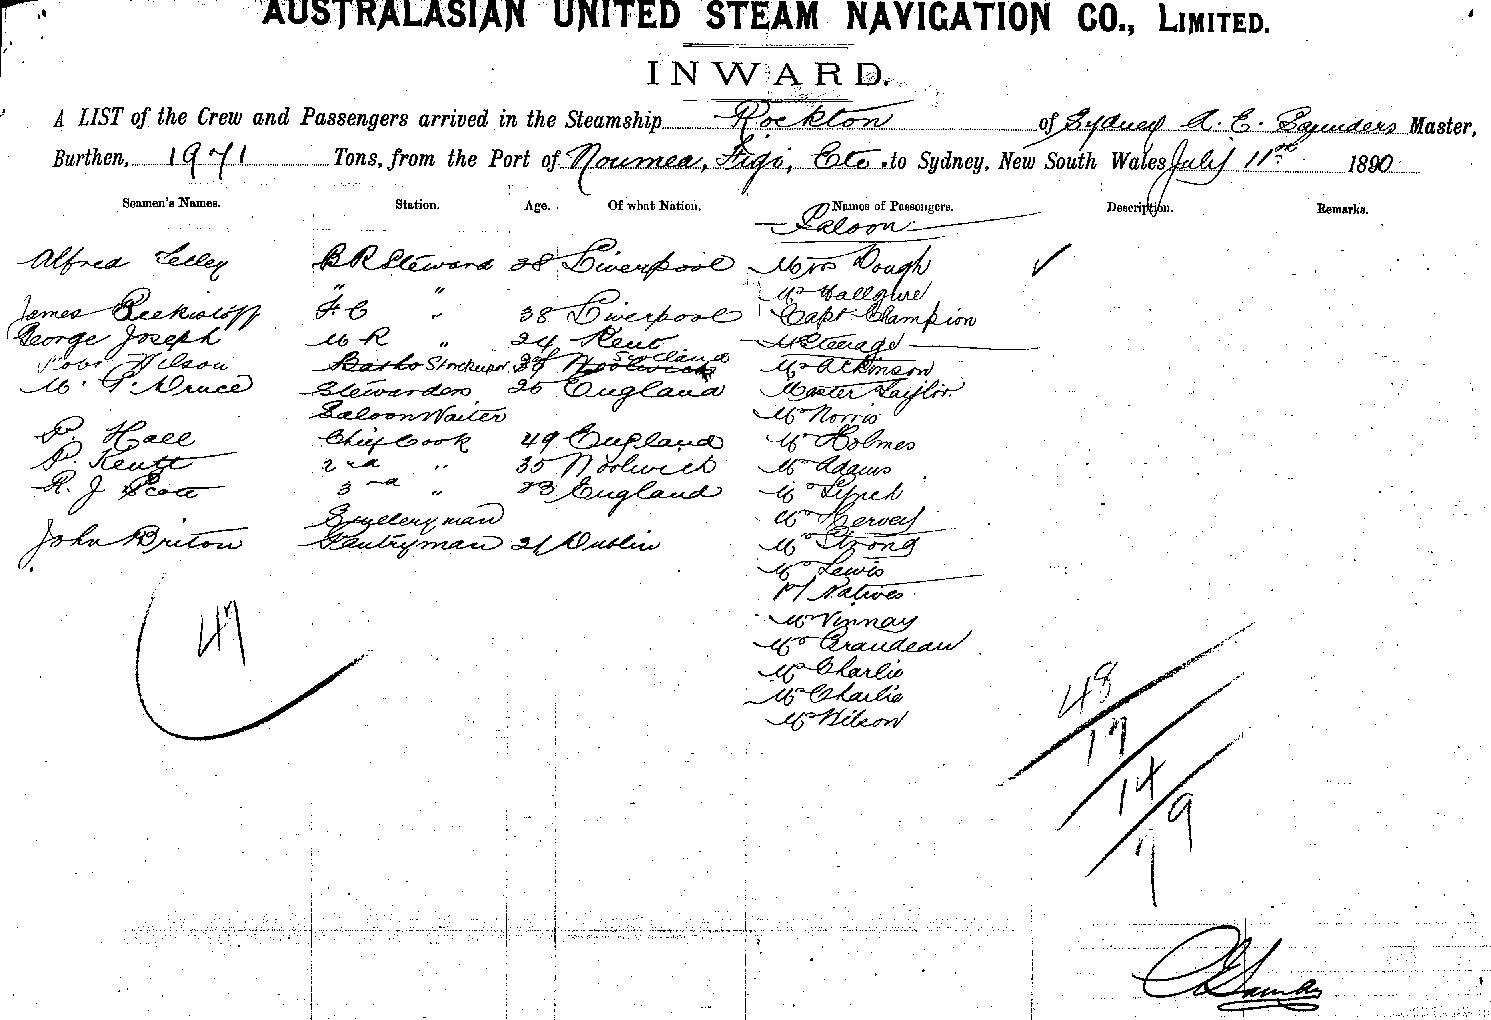 AUSTRALASIAN UNITED STEAM NAVIGATION CO., LIMITED.
INWARD.
A LIST of the Crew and Passengers arrived in the Steamship Rockton of Sydney A. E. Saunders Master,
Burthen, 1971 Tons, from the Port of Noumea, Fiji, Etc. to Sydney, New South Wales July 11th 1890
Seamen's Names. Station. Age. Of what Nation. Names of Passengers. Description. Remarks.
Saloon
Alfred Lelley B R Steward 28 Liverpool Mrs Dough ✓
" "
Mr Wallquire
James F. C " 38 Liverpool Capt Champion
George Joseph M R " 24 Kent Steerage
Robt Wilson Storekeeper Scotland Mr Atkinson
M. G. Druce Stewardess 26 England Master Taylor
Saloon Waiter Mr Norris
P. Hall Chief Cook 49 England Mr Holmes
P. Keutt 2nd " 35 Woolwich Mr Adams
R. J. Scott 3rd " 23 England Mr Lynch
Scullery man Mr Hervey
John Briton Pantryman 21 Dublin Mr Strong
Mr Lewis
Natives
47
Mr Vinnay
Mr Graudeau
Mr Charlie
Mr Charlie
Mr Wilson
48
17
14
9
7
A E Saunders